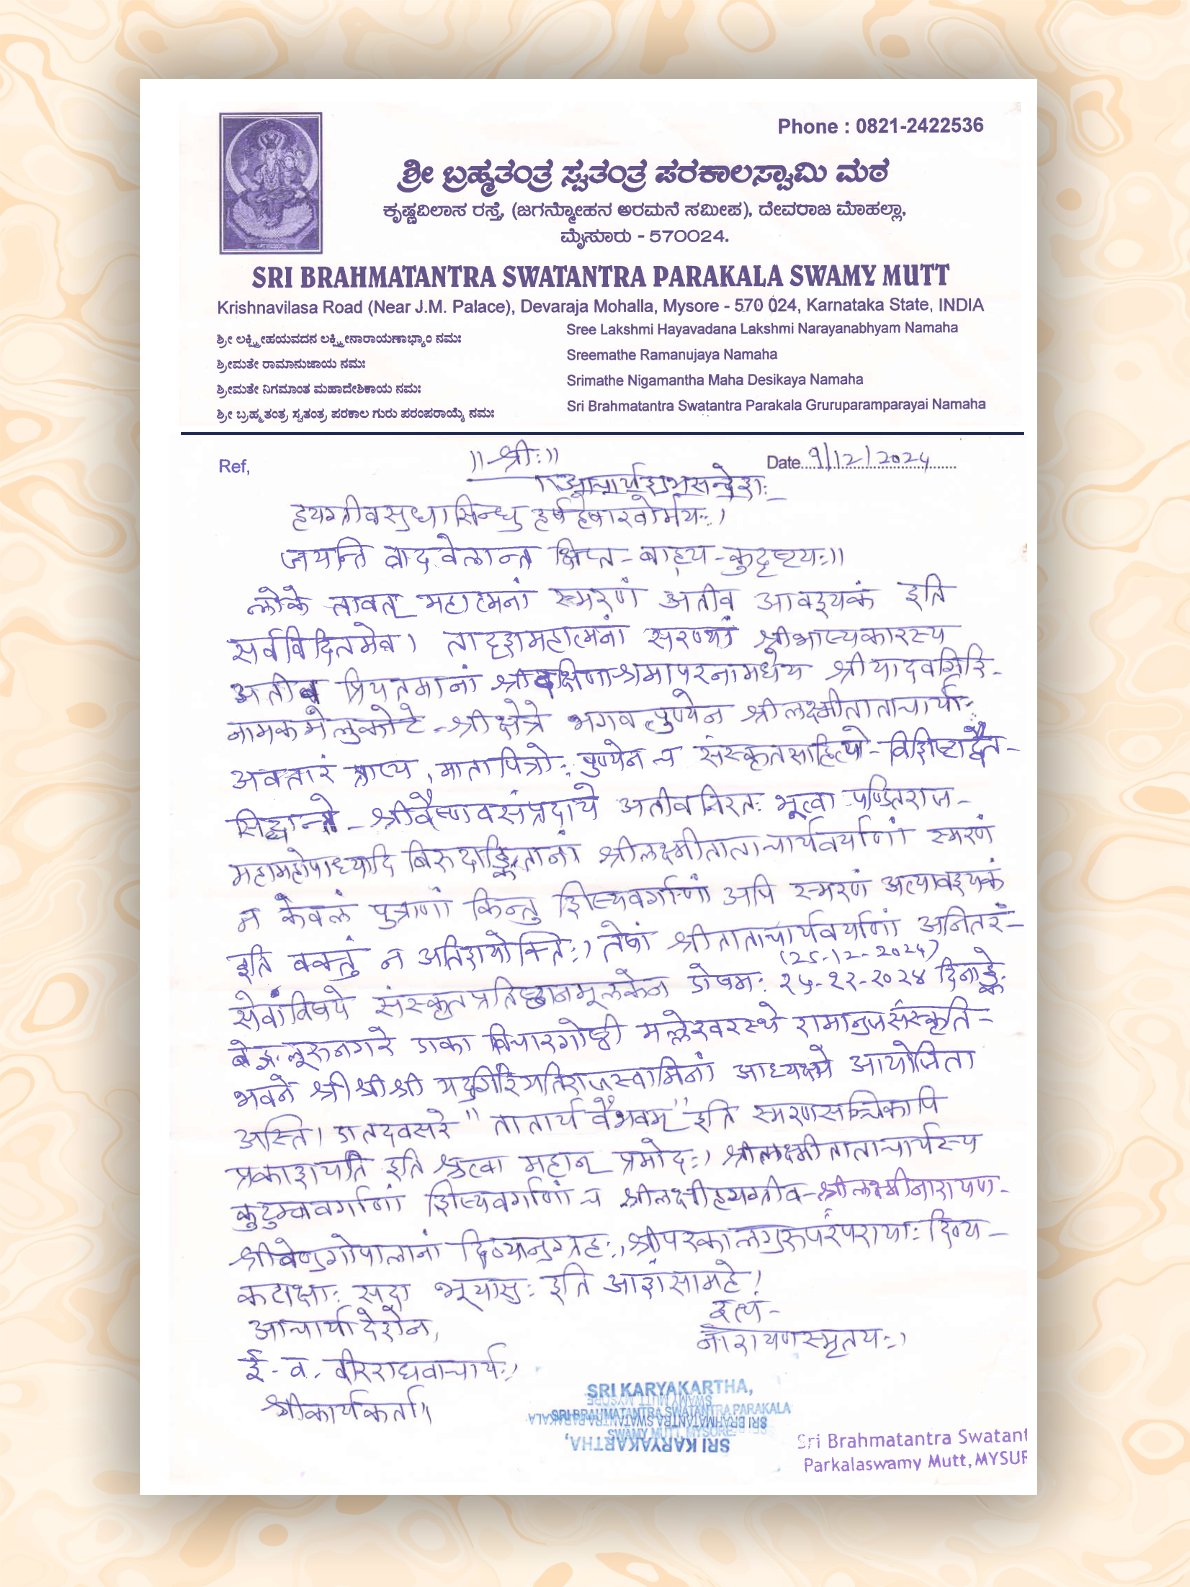 Phone : 0821-2422536
ಶ್ರೀ ಬ್ರಹ್ಮತಂತ್ರ ಸ್ವತಂತ್ರ ಪರಕಾಲಸ್ವಾಮಿ ಮಠ
ಕೃಷ್ಣವಿಲಾಸ ರಸ್ತೆ, (ಜಗನ್ಮೋಹನ ಅರಮನೆ ಸಮೀಪ), ದೇವರಾಜ ಮೊಹಲ್ಲಾ,
ಮೈಸೂರು - 570024.
SRI BRAHMATANTRA SWATANTRA PARAKALA SWAMY MUTT
Krishnavilasa Road (Near J.M. Palace), Devaraja Mohalla, Mysore - 570 024, Karnataka State, INDIA
ಶ್ರೀ ಲಕ್ಷ್ಮೀಹಯವದನ ಲಕ್ಷ್ಮೀನಾರಾಯಣಾಭ್ಯಾಂ ನಮಃ
Sree Lakshmi Hayavadana Lakshmi Narayanabhyam Namaha
ಶ್ರೀಮತೇ ರಾಮಾನುಜಾಯ ನಮಃ
Sreemathe Ramanujaya Namaha
ಶ್ರೀಮತೇ ನಿಗಮಾಂತ ಮಹಾದೇಶಿಕಾಯ ನಮಃ
Srimathe Nigamantha Maha Desikaya Namaha
ಶ್ರೀ ಬ್ರಹ್ಮತಂತ್ರ ಸ್ವತಂತ್ರ ಪರಕಾಲ ಗುರು ಪರಂಪರಾಯೈ ನಮಃ
Sri Brahmatantra Swatantra Parakala Gruruparamparayai Namaha
Ref,
॥श्रीः॥
Date. 9/12/2024
आचार्यशुभसन्देशः
हयग्रीवसुधासिन्धु हर्षहेषारवोर्मयः।
जयन्ति वादवेलान्त क्षिप्त-बाह्य-कुदृष्टयः॥
लोके तावत् महात्मनां स्मरणं अतीव आवश्यकं इति
सर्वविदितमेव। तादृशमहात्मनां सरण्यां श्रीभाष्यकारस्य
अतीव प्रियतमानां श्रीदक्षिणाश्रमापरनामधेय श्रीयादवगिरि-
नामकमेलुकोटे-श्रीक्षेत्रे भगवत्पुण्येन श्रीलक्ष्मीताताचार्याः
अवतारं प्राप्य, मातापित्रोः पुण्येन च संस्कृतसाहित्ये-विशिष्टाद्वैत-
सिद्धान्ते-श्रीवैष्णवसंप्रदाये अतीवनिरतः भूत्वा पण्डितराज-
महामहोपाध्यादि बिरुदाङ्कितानां श्रीलक्ष्मीताताचार्यवर्याणां स्मरणं
न केवलं पुत्राणां किन्तु शिष्यवर्गाणां अपि स्मरणं अत्यावश्यकं
इति वक्तुं न अतिशयोक्तिः। तेषां श्रीताताचार्यवर्याणां अनितरं-
(25-12-2024)
सेवाविषये संस्कृतप्रतिष्ठानमूलकेन २५-१२-२०२४ दिनाङ्के
बेङ्गलूरुनगरे एका विचारगोष्ठी मल्लेश्वरस्थे रामानुजसंस्कृति-
भवने श्री श्री श्री यदुगिरियतिराजस्वामिनां आध्यक्ष्ये आयोजिता
अस्ति। एतदवसरे "तातार्य वैभवम्" इति स्मरणसञ्चिकापि
प्रकाशयति इति श्रुत्वा महान् प्रमोदः। श्रीलक्ष्मीताताचार्यस्य
कुटुम्बवर्गाणां शिष्यवर्गाणां च श्रीलक्ष्मीहयग्रीव-श्रीलक्ष्मीनारायण-
श्रीवेणुगोपालानां दिव्यानुग्रहः, श्रीपरकालगुरुपरंपरायाः दिव्य-
कटाक्षाः सदा भूयासुः इति आशंसामहे।
इत्थं-
आचार्यादेशेन,
नारायणस्मृतयः।
ई-व. वीरराघवाचार्यः।
श्रीकार्यकर्ता।
SRI KARYAKARTHA,
SRI BRAHMATANTRA SWATANTRA PARAKALA
SWAMY MUTT, MYSORE
SRI KARYAKARTHA,
Sri Brahmatantra Swatant
Parkalaswamy Mutt, MYSUR